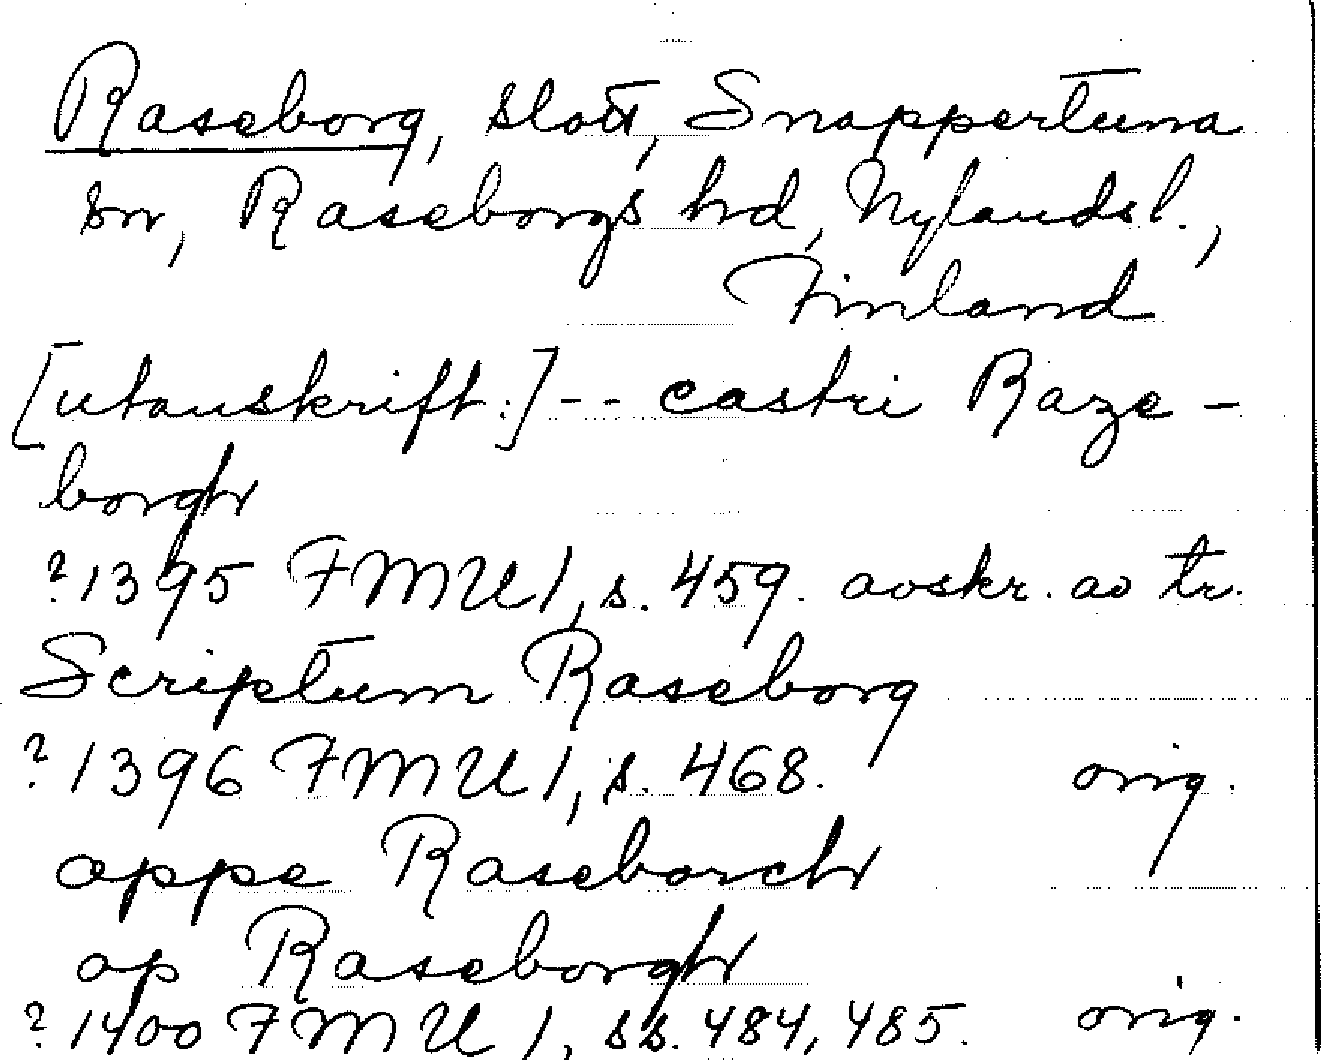 Raseborg, slott, Snappertuna
sn, Raseborgs hd, Nylands l.,
Finland
[utanskrift:] -- castri Raze-
borgh
?1395 FMU 1, s. 459. avskr. av tr.
Scriptum Raseborg
?1396 FMU 1, s. 468. orig.
oppe Raseborch
op Raseborgh
?1400 FMU 1, ss. 484, 485. orig.